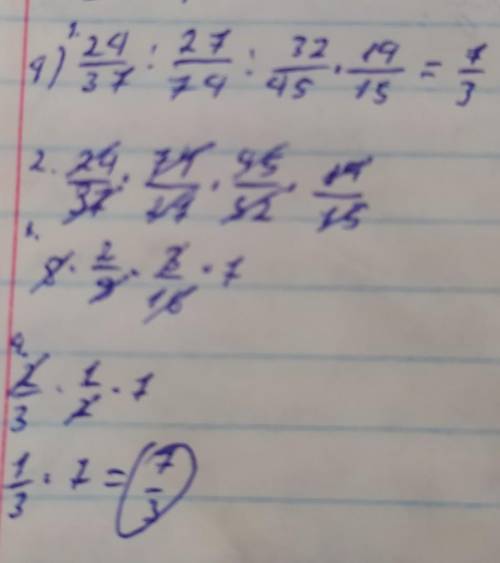 4) 1. 24/37 : 27/74 : 32/45 · 14/15 = 7/3
2. 24/37 · 74/27 · 45/32 · 14/15
3. 8 · 2/9 · 3/16 · 7
4. 2/3 · 1/2 · 7
1/3 · 7 = 7/3